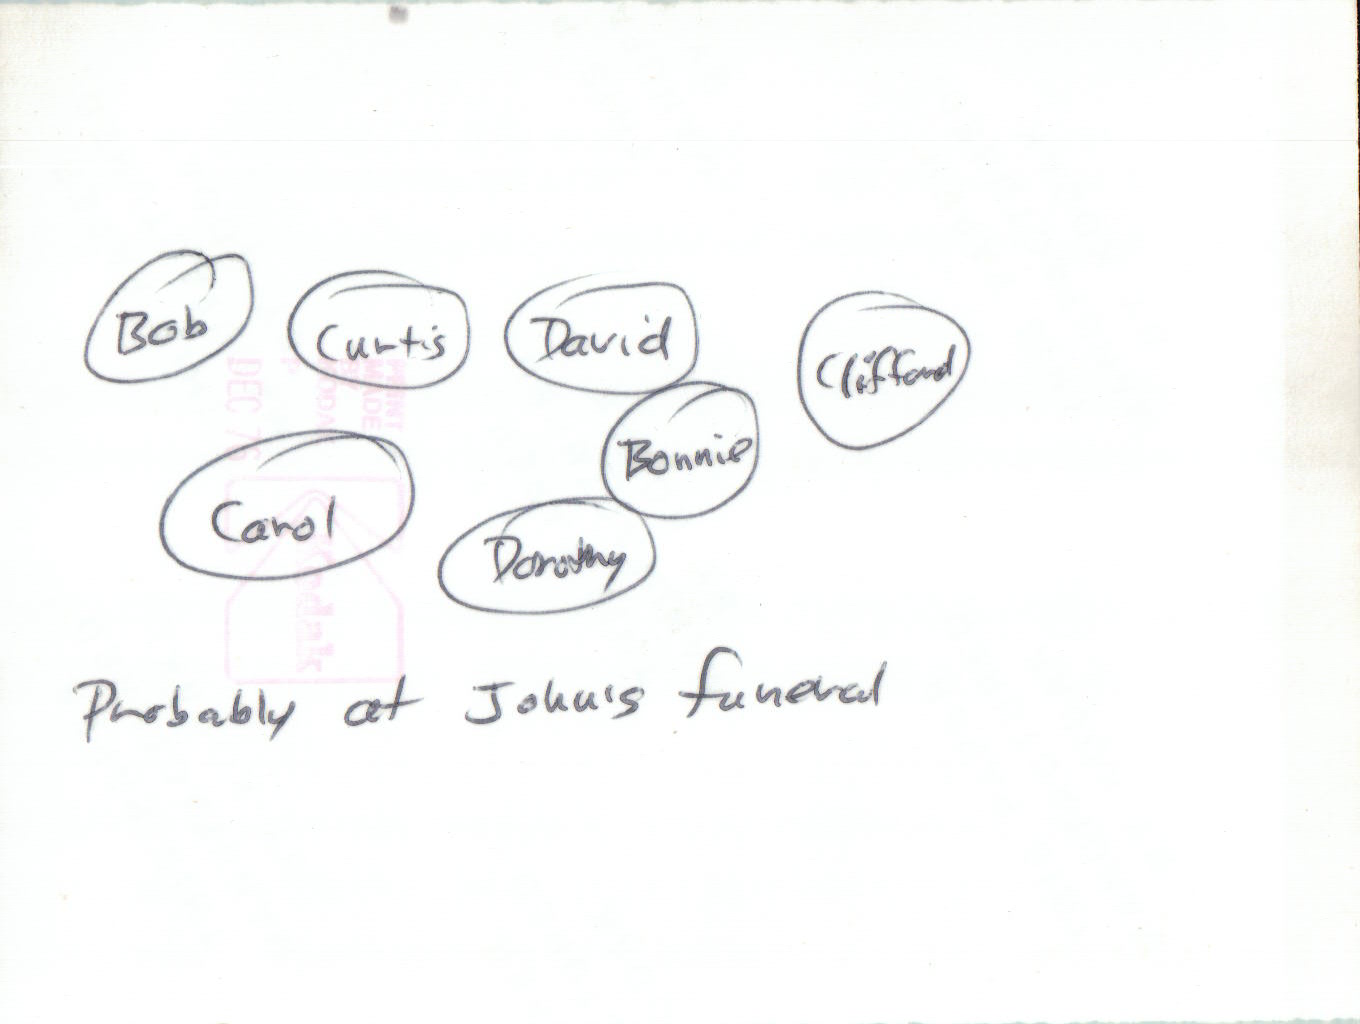 Bob Curtis David Clifford
Bonnie
Carol Dorothy
Probably at John's funeral
PRINT
MADE
BY
KODAK
DEC 76
Kodak